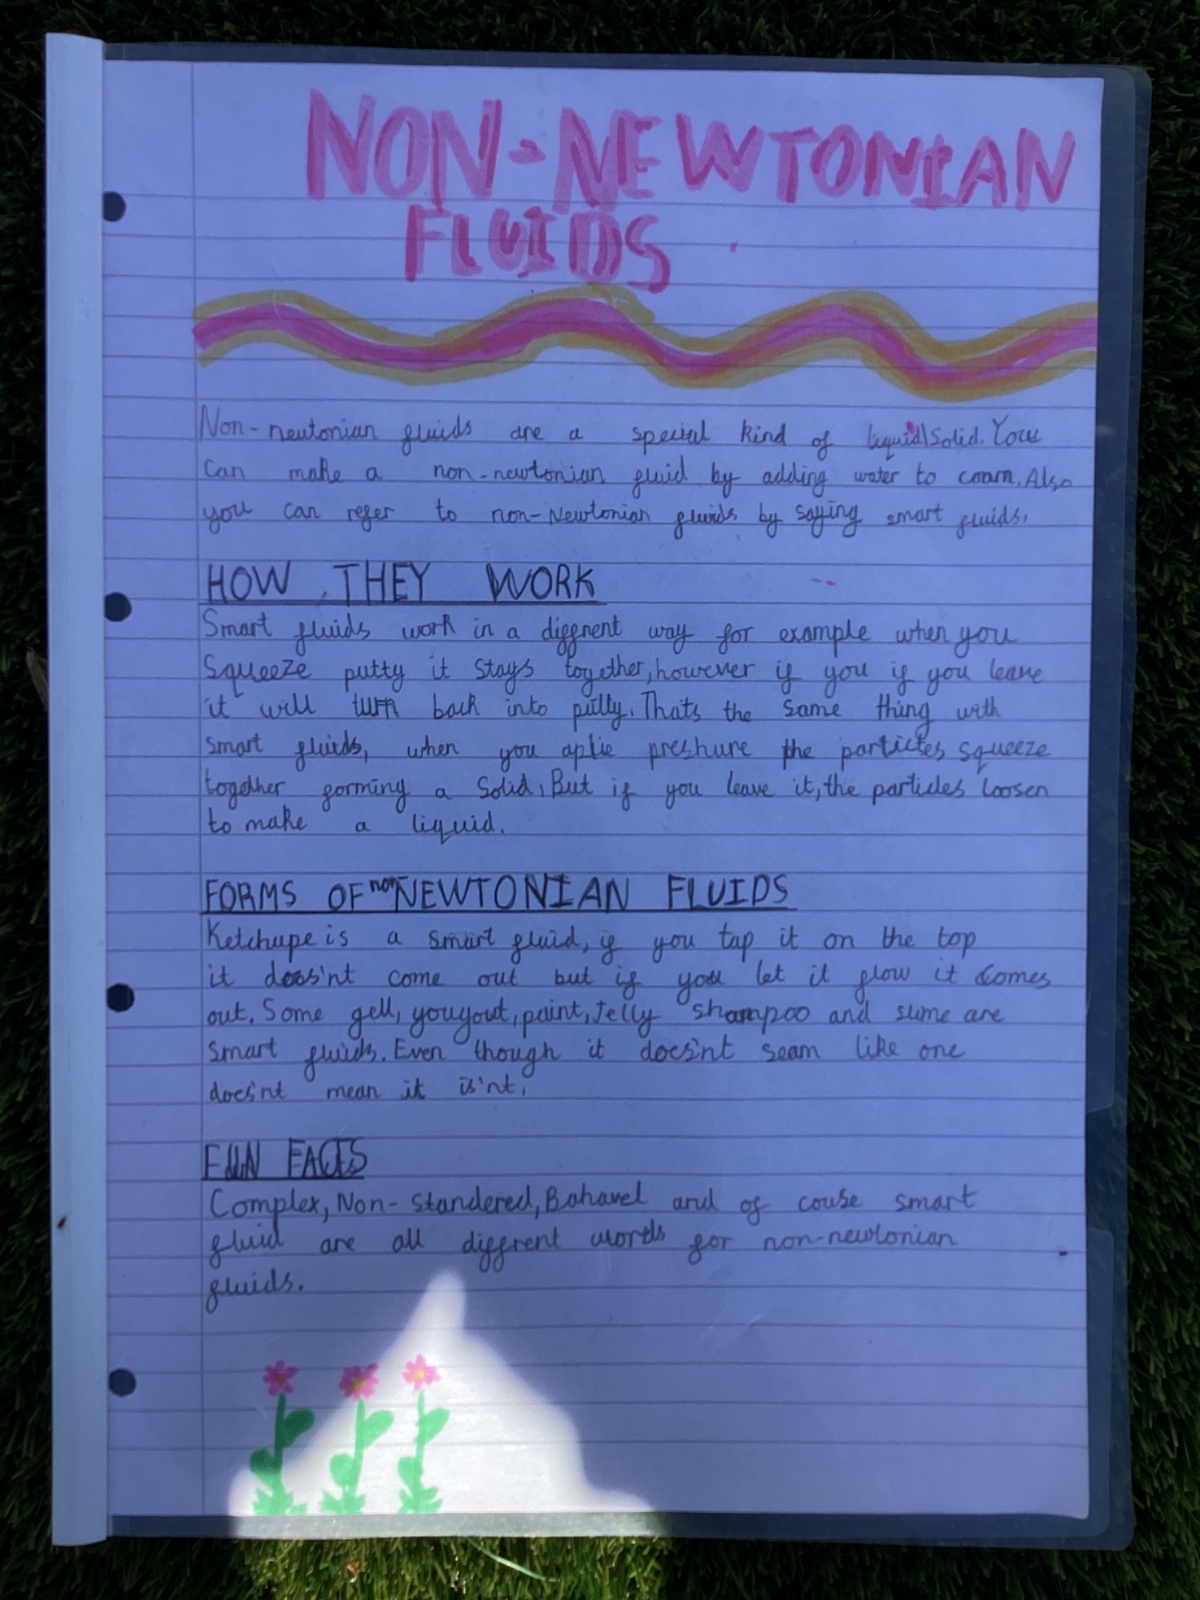 NON-NEWTONIAN
FLUIDS
Non-neutonian fluids are a special kind of liquid\Solid. You
can make a non-newtonian fluid by adding water to coarn. Also
you can refer to non-Newtonian fluids by saying smart fluids.
HOW THEY WORK
Smart fluids work in a diffrent way for example when you
Squeeze putty it stays together, however if you if you leave
it will turn back into putty. Thats the same thing with
smart fluids, when you aplie preshure the particles squeeze
together forming a Solid, But if you leave it, the particles loosen
to make a liquid.
FORMS OF non NEWTONIAN FLUIDS
Ketchupe is a smart fluid, if you tap it on the top
it does'nt come out but if you let it flow it comes
out. Some gell, yougout, paint, Jelly shampoo and slime are
smart fluids. Even though it does'nt seam like one
does'nt mean it is'nt.
FUN FACTS
Complex, Non-Standered, Bahavel and of couse smart
fluid are all diffrent words for non-newtonian
fluids.